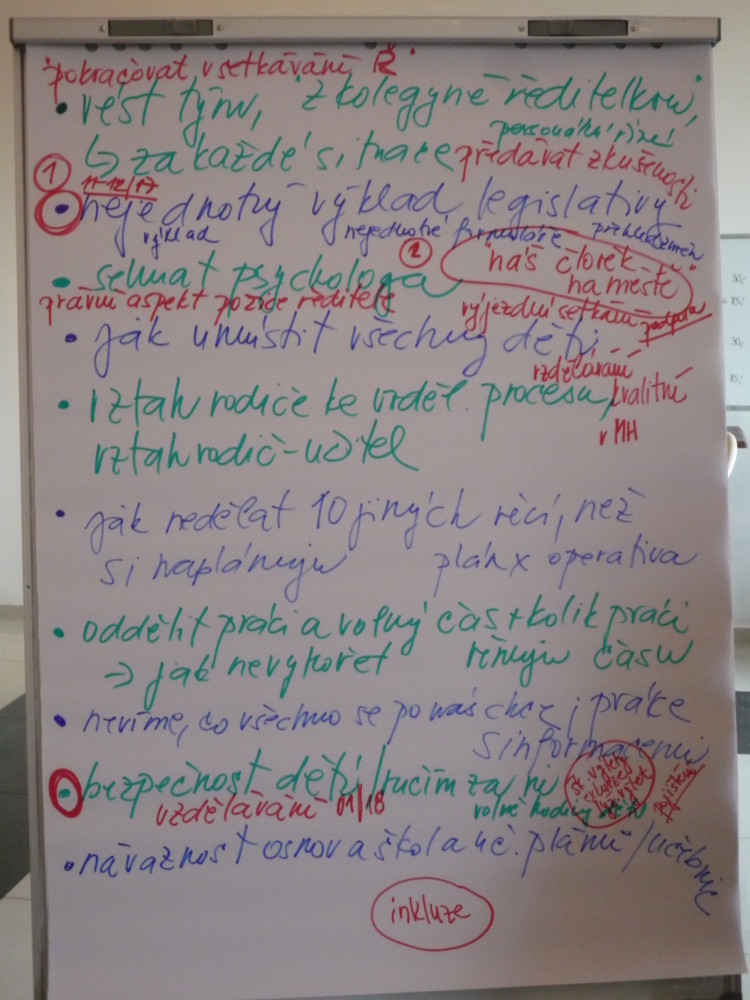 pokračovat v setkávání Ř
• vést týmu, z kolegyně ředitelkou,
personální řízení
↳ za každé situace předávat zkušenosti
1
11-12/17
• nejednotný výklad legislativy
výklad nejednotné formuláře přehled změn
2
"náš člověk na
na městě"
• sehnat psychologa
právní aspekt pozice ředitele
výjezdní setkání podpora
• jak umístit všechny děti
vzdělávání
• vztah rodiče ke vzděl. procesu, kvalitní
v MH
vztah rodič-učitel
• jak nedělat 10 jiných věcí, než
si naplánuju plán x operativa
• oddělit práci a volný čas + kolik práci
→ jak nevyhořet věnuju času
• nevíme, co všechno se po nás chce, práce
s informacemi
• bezpečnost dětí / ručím za ni
vzdělávání 01/18
volné hodiny
výlet
pojištění
• návaznost osnov a škola uč. plánů / učebnic
inkluze